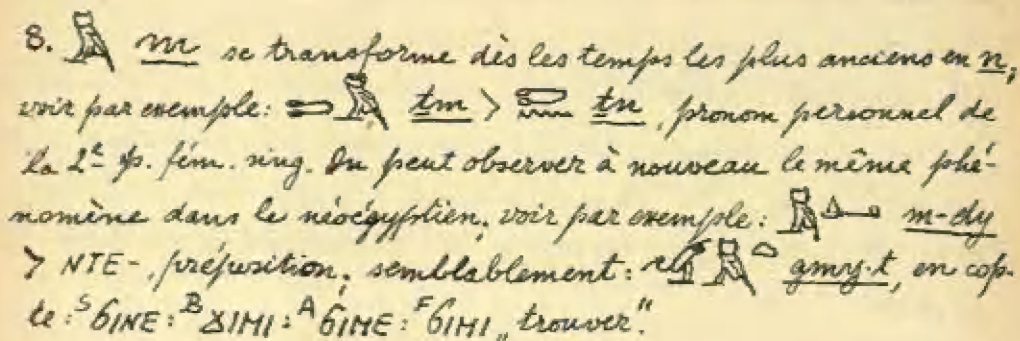 8. 𓅓 m se transforme dès les temps les plus anciens en n,
voir par exemple: 𓍿𓅓 ṯm > 𓍿𓈖 ṯn, pronom personnel de
la 2e p. fém. sing. On peut observer à nouveau le même phé-
nomène dans le néoégyptien, voir par exemple: 𓅓𓂞 m-dy
> NTE-, préposition; semblablement: 𓅓𓏏 gmy·t, en cop-
te: S ϬΙΝΕ: B ϪΙΜΙ: A ϬΙΜΕ: F ϬΙΜΙ „trouver“.